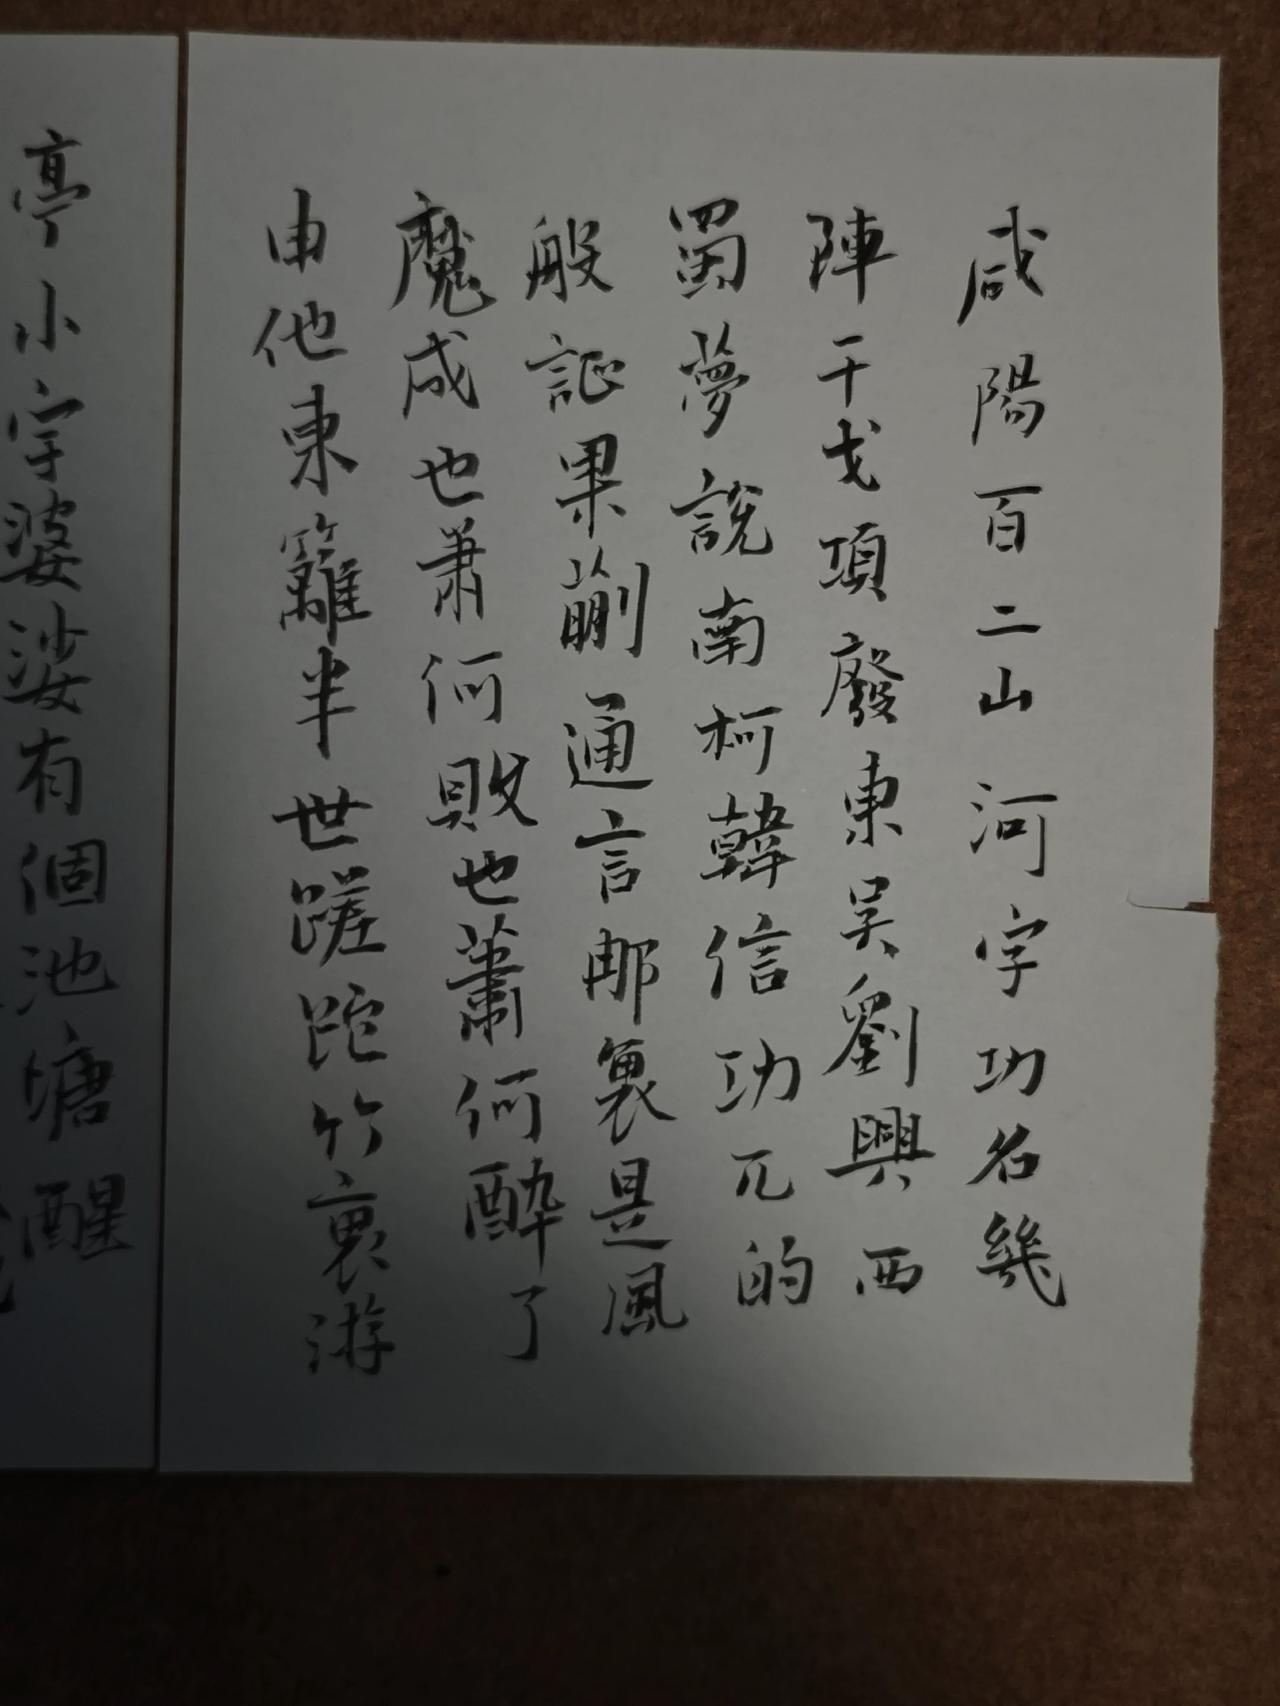 咸陽百二山河字功名幾
陣干戈項廢東吴劉興西
蜀夢說南柯韓信功兀的
般証果蒯通言那裏是風
魔成也萧何敗也蕭何醉了
由他東籬半世蹉跎竹裏游
亭小宇婆娑有個池塘醒